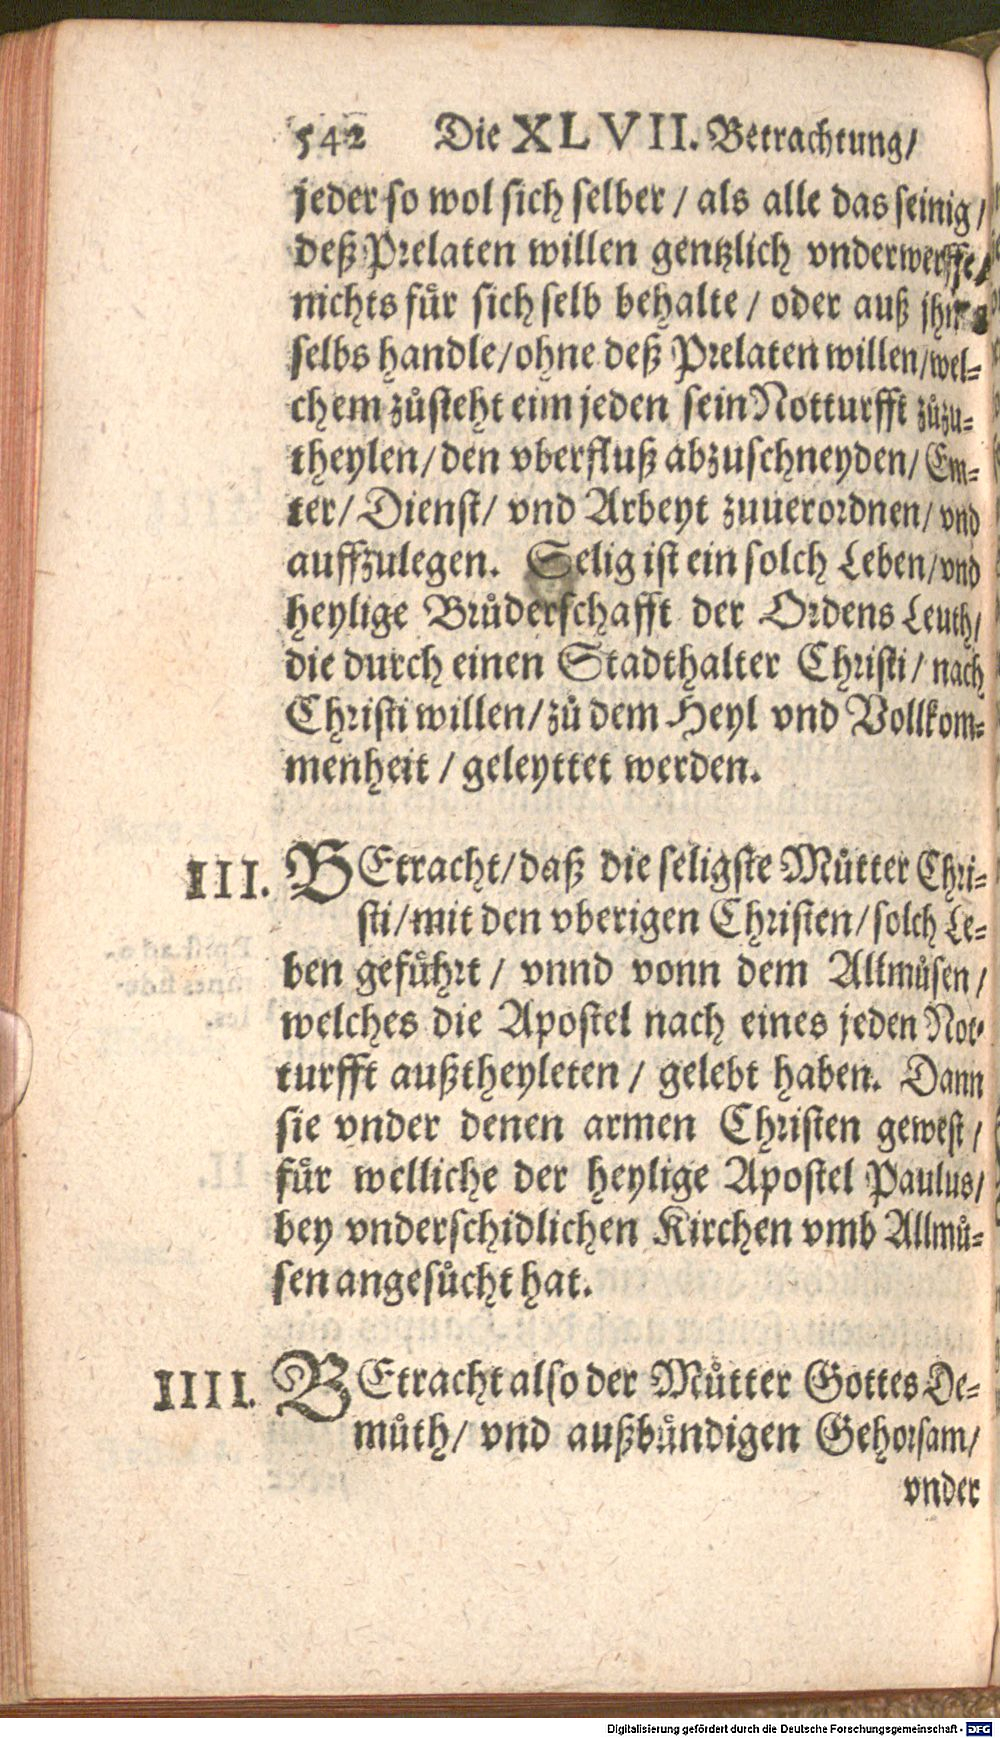 542 Die XLVII. Betrachtung/
jeder so wol sich selber / als alle das seinig /
deß Prelaten willen gentzlich vnderwerffe /
nichts fuͤr sich selb behalte / oder auß jhm
selbs handle/ohne deß Prelaten willen/wel-
chem zuͦsteht eim jeden sein Notturfft zuͦzu-
theylen/den vberfluß abzuschneyden/Em-
ter/ Dienst/ vnd Arbeyt zuuerordnen/ vnd
auffzulegen. Selig ist ein solch Leben/vnd
heylige Bruͦderschafft der Ordens Leuth/
die durch einen Stadthalter Christi/ nach
Christi willen/zuͦ dem Heyl vnd Vollkom-
menheit / geleyttet werden.
III. BEtracht/daß die seligste Muͦtter Chri-
sti/mit den vberigen Christen/solch Le-
ben gefuͤhrt / vnnd vonn dem Allmuͦsen /
welches die Apostel nach eines jeden Not-
turfft außtheyleten / gelebt haben. Dann
sie vnder denen armen Christen gewest /
fuͤr welliche der heylige Apostel Paulus/
bey vnderschidlichen Kirchen vmb Allmuͦ-
sen angesuͦcht hat.
IIII. BEtracht also der Muͦtter Gottes De-
muͦth/ vnd außbuͤndigen Gehorsam/
vnder
Digitalisierung gefördert durch die Deutsche Forschungsgemeinschaft - DFG